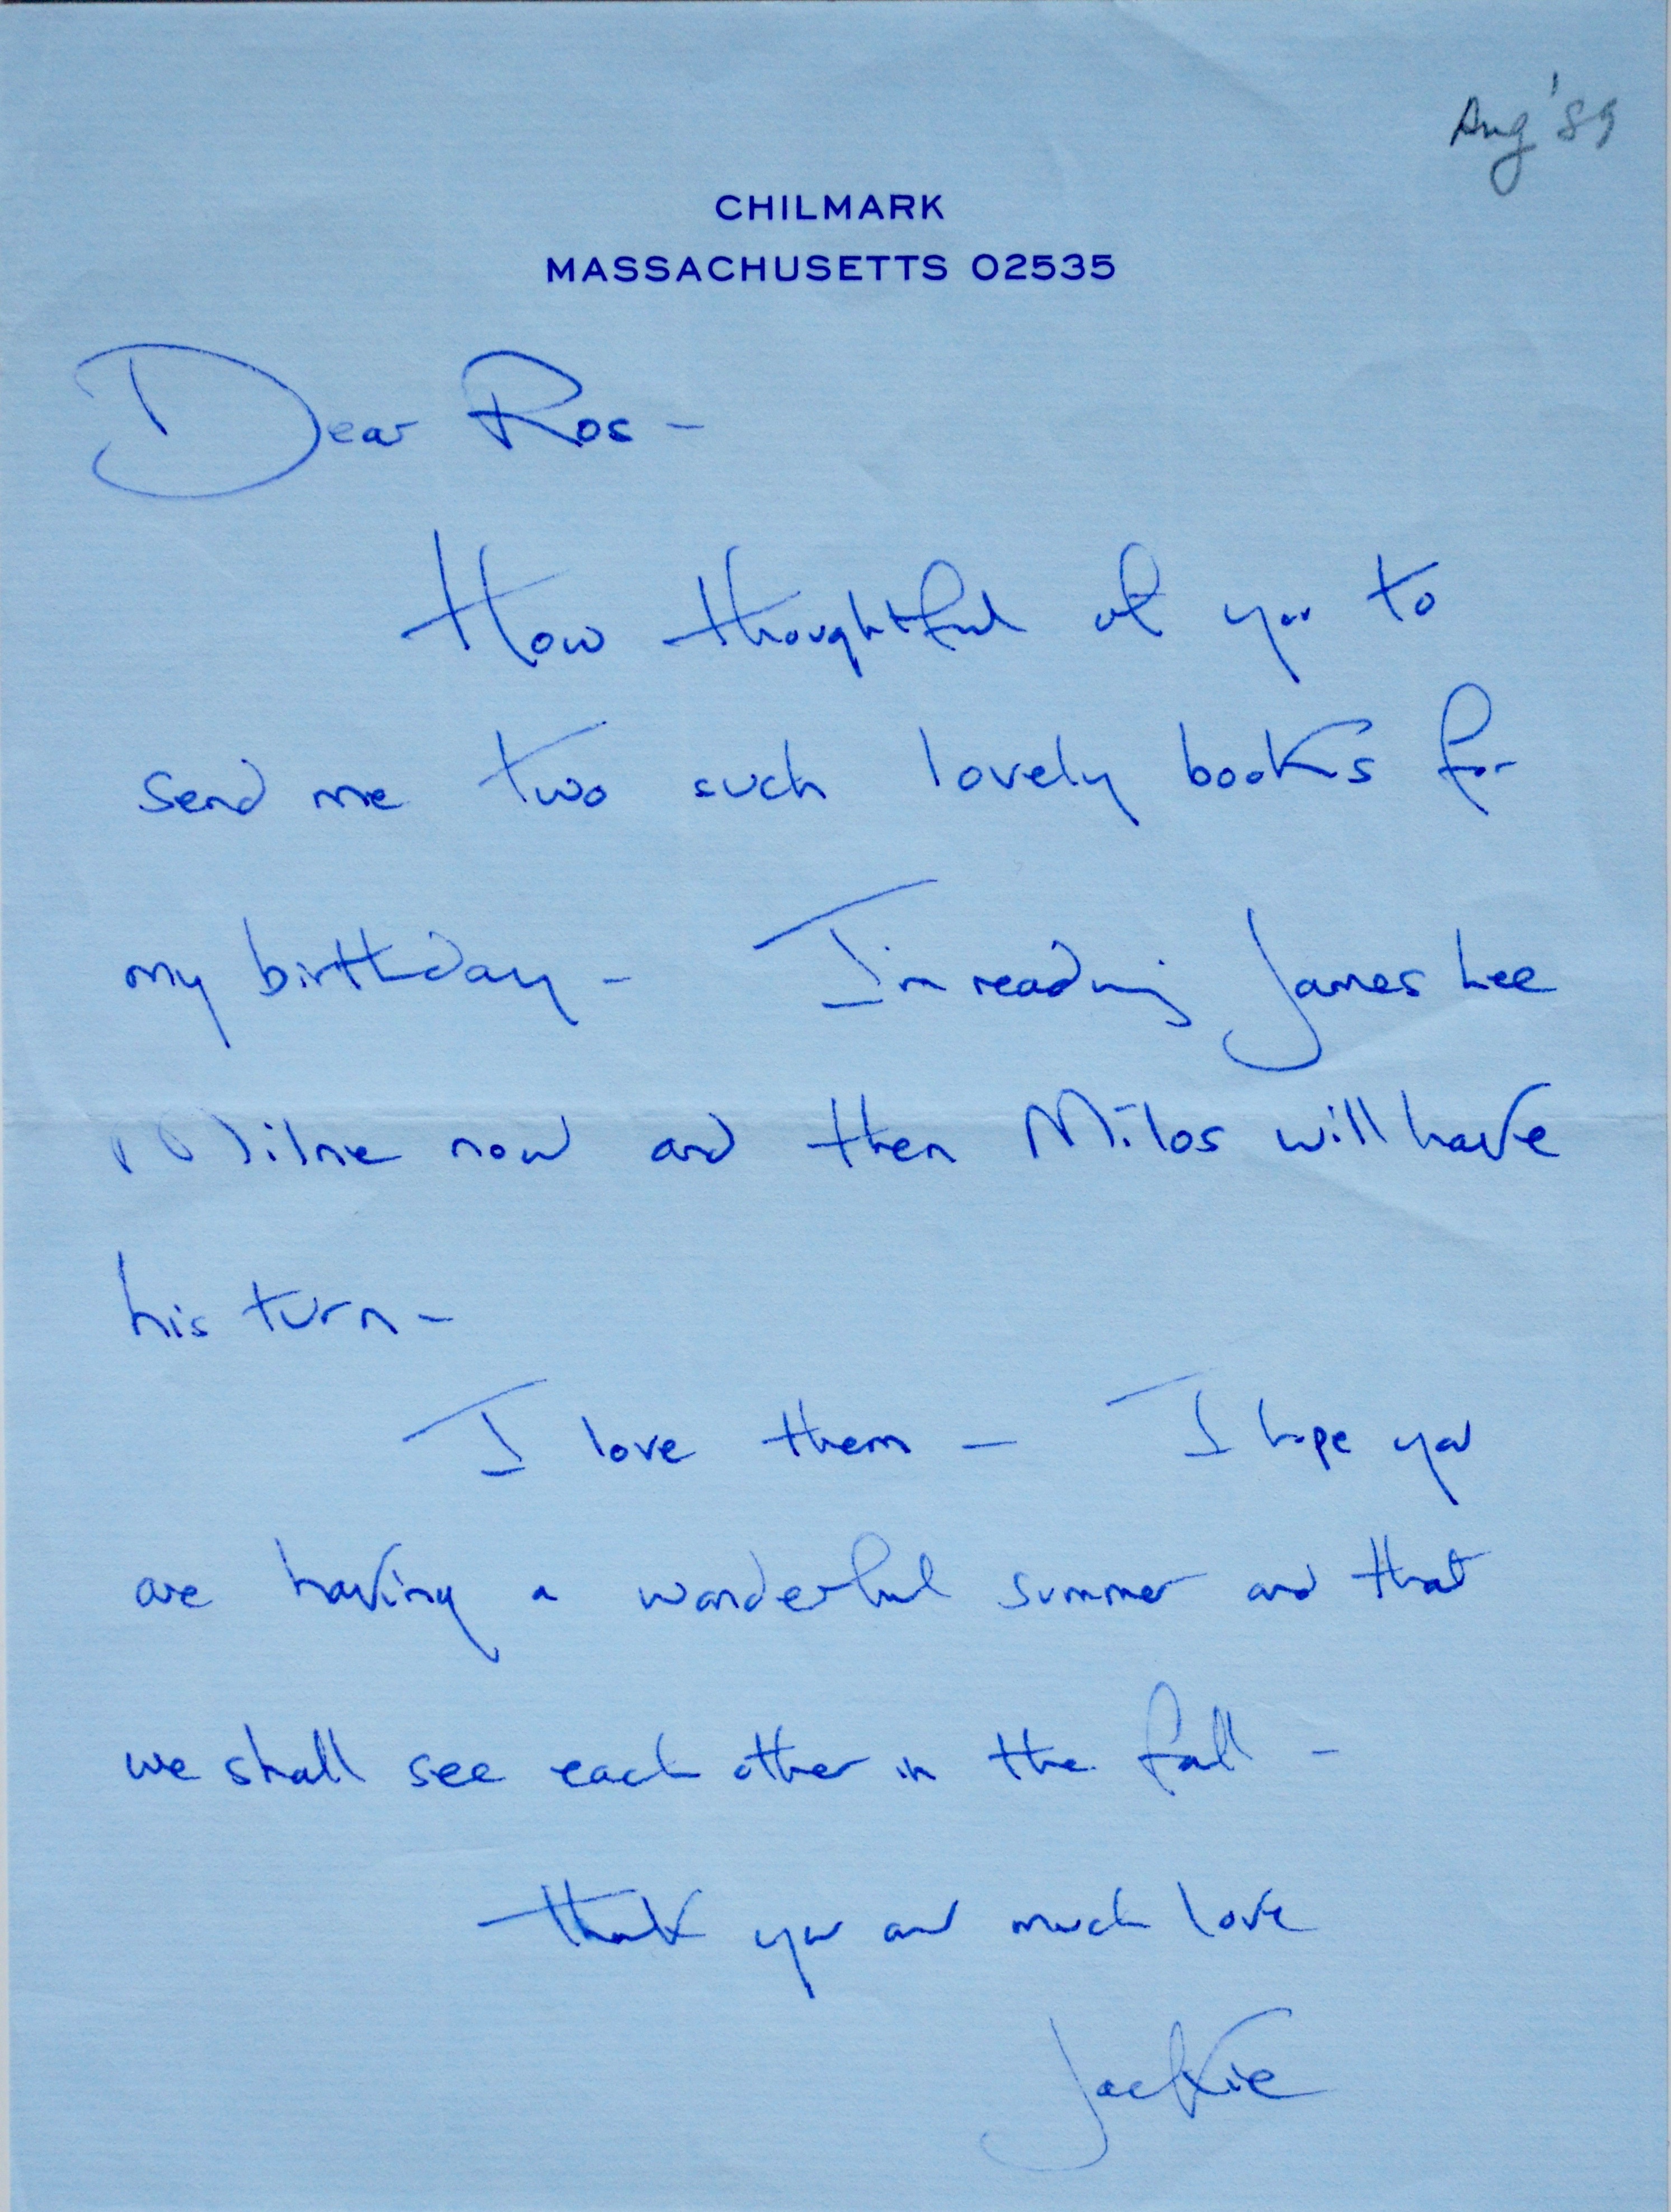 Aug '89
CHILMARK
MASSACHUSETTS 02535
Dear Ros -
How thoughtful of you to
send me two such lovely books for
my birthday - I'm reading James Lee
Milne now and then Milos will have
his turn -
I love them - I hope you
are having a wonderful summer and that
we shall see each other in the fall -
thank you and much love
Jackie